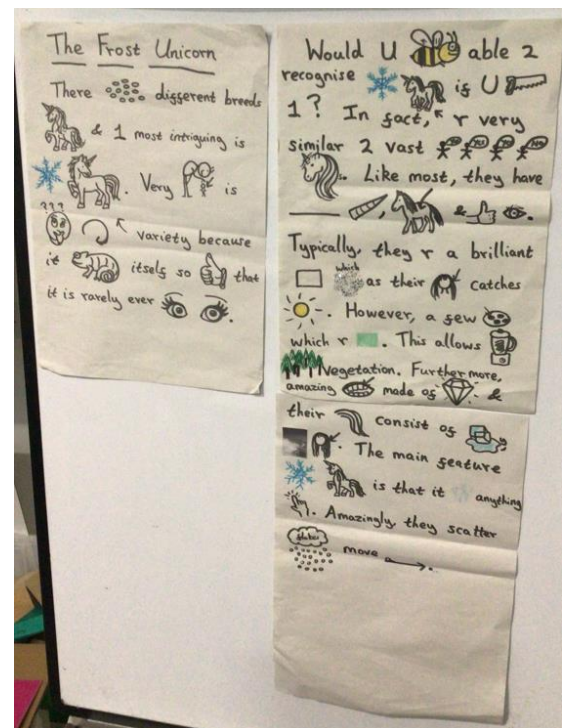 The Frost Unicorn
There different breeds
& 1 most intriguing is
. Very is
???
variety because
it itself so that
it is rarely ever .
Would U able 2
recognise if U
1? In fact, r very
similar 2 vast
. Like most, they have
, & .
Typically, they r a brilliant
which
as their catches
. However, a few
which r . This allows
vegetation. Furthermore,
amazing made of &
their consist of
. The main feature
is that it anything
. Amazingly they scatter
flakes
move .